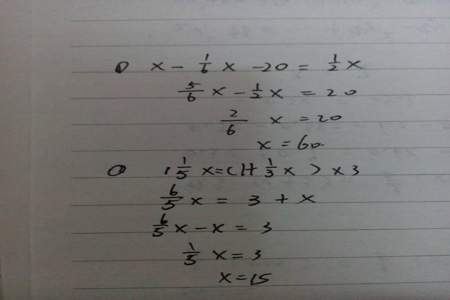 ① x - 1/6 x - 20 = 1/2 x
5/6 x - 1/2 x = 20
2/6 x = 20
x = 60.
② 1 1/5 x = (1 + 1/3 x) × 3
6/5 x = 3 + x
6/5 x - x = 3
1/5 x = 3
x = 15